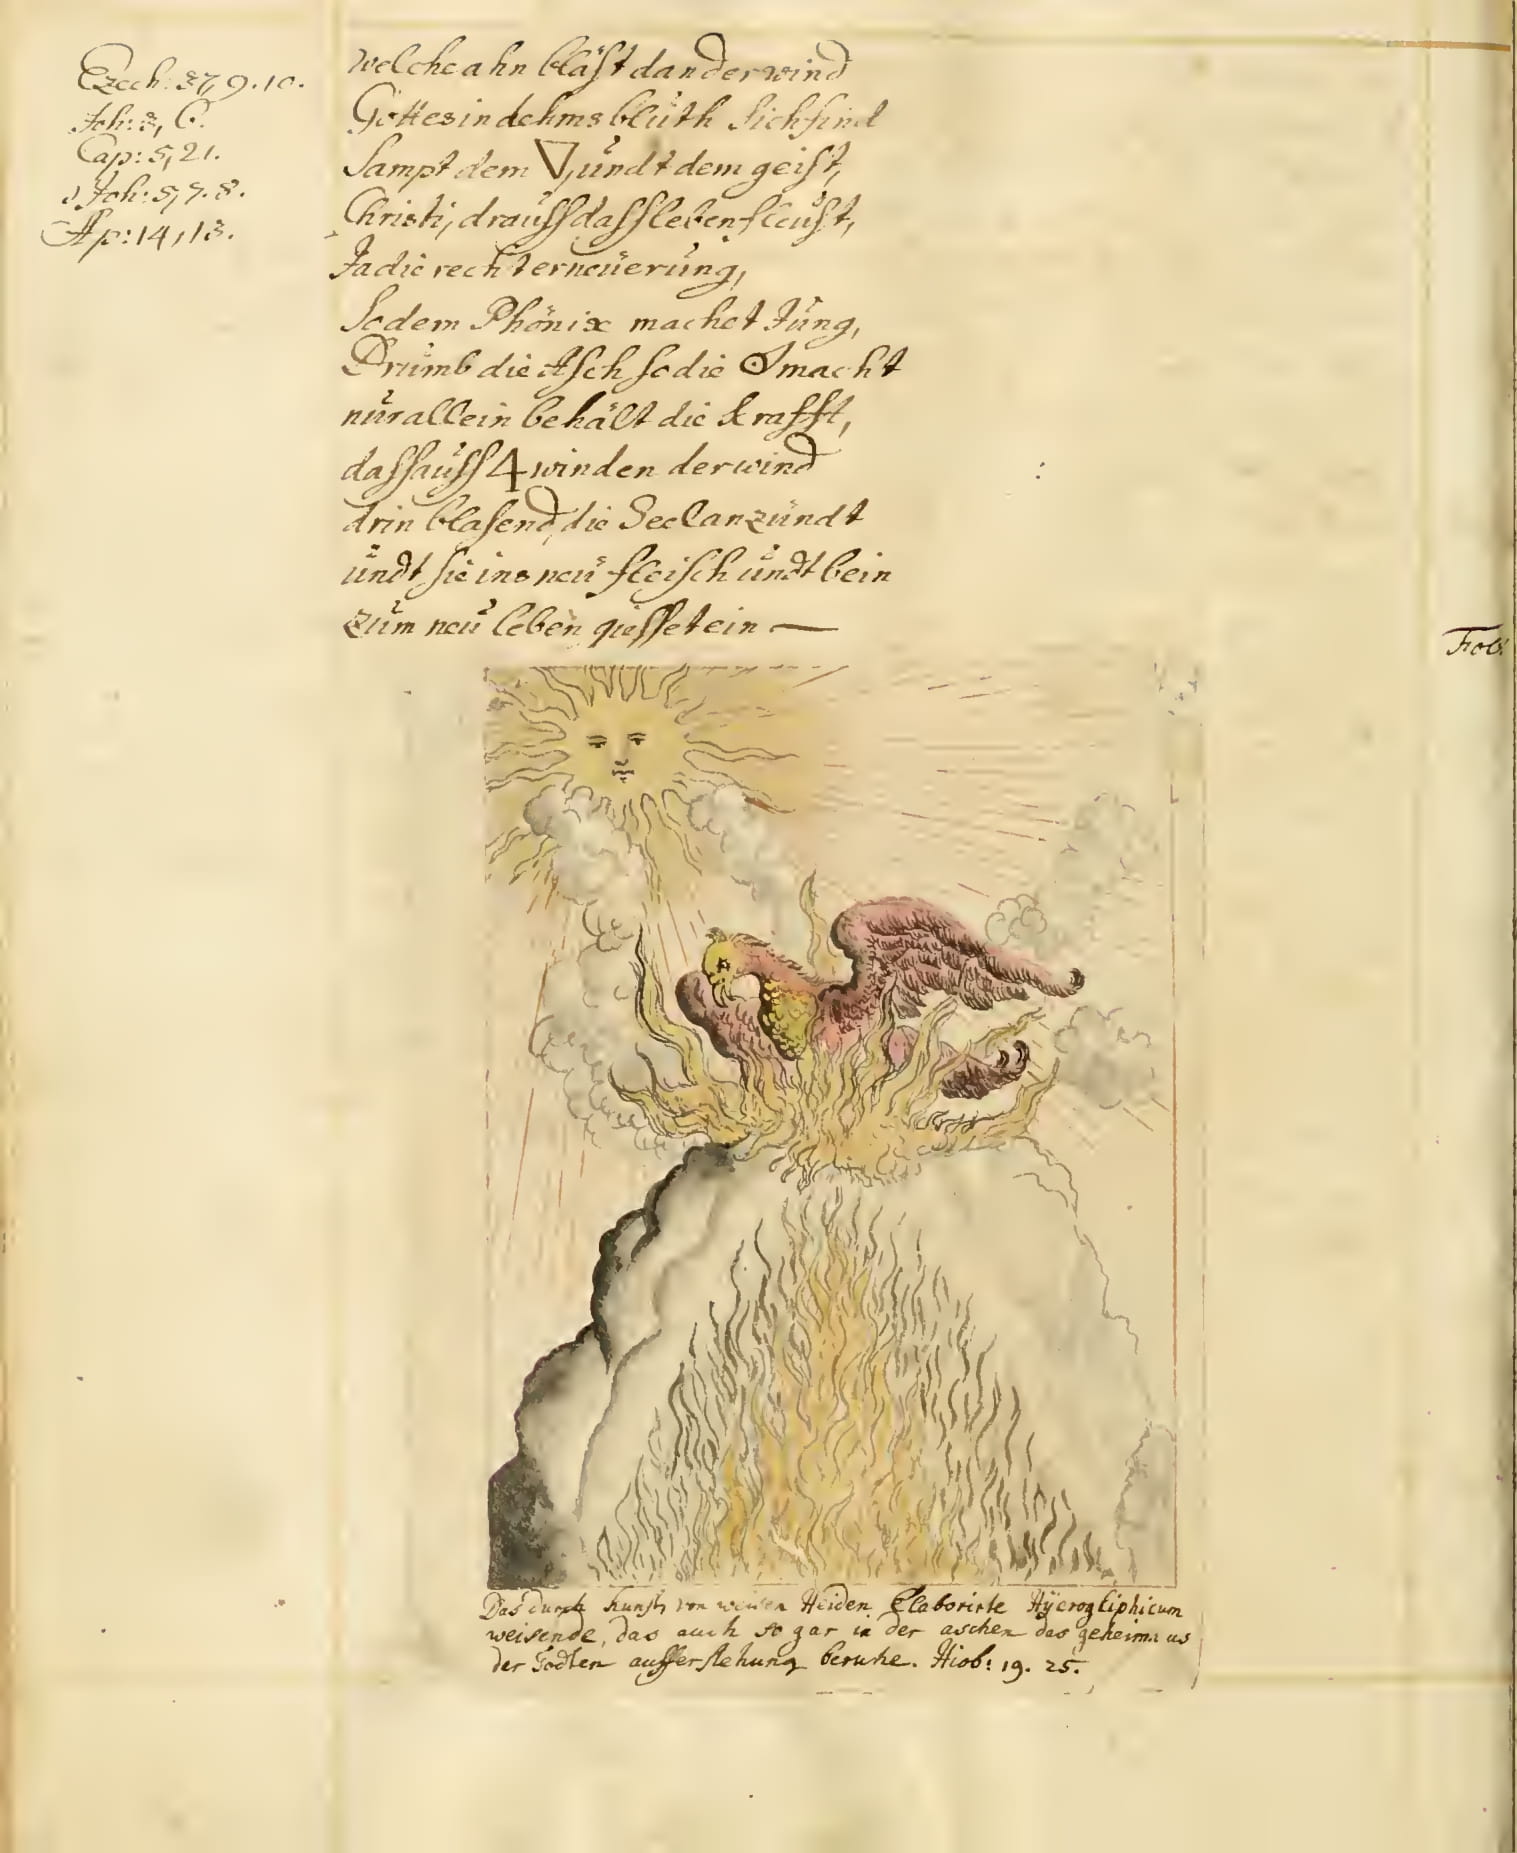 Ezech: 37, 9. 10.
Joh: 3, 6.
Cap: 5, 21.
1 Joh: 5, 7. 8.
Ap: 14, 13.
welche ahn bläst dan der wind
Gottes in dehms bluth sich find
Sampt dem ▽, undt dem geist,
Christi, drauss dass leben fleust,
Ja die recht erneuerung,
So dem Phönix machet Jung,
Drumb die Asch so die ☉ macht
nur allein behält die Krafft,
dass auss 4 winden der wind
drin blasend, die Seel anzündt
undt sie ins neu fleisch undt bein
zum neu leben giesset ein —
Fol:
Das durch Kunst von weisen Heiden Elaborirte Hÿerogliphicum
weisende, das auch so gar in der aschen das geheimnus
der Todten aufferstehung beruhe. Hiob: 19. 25.